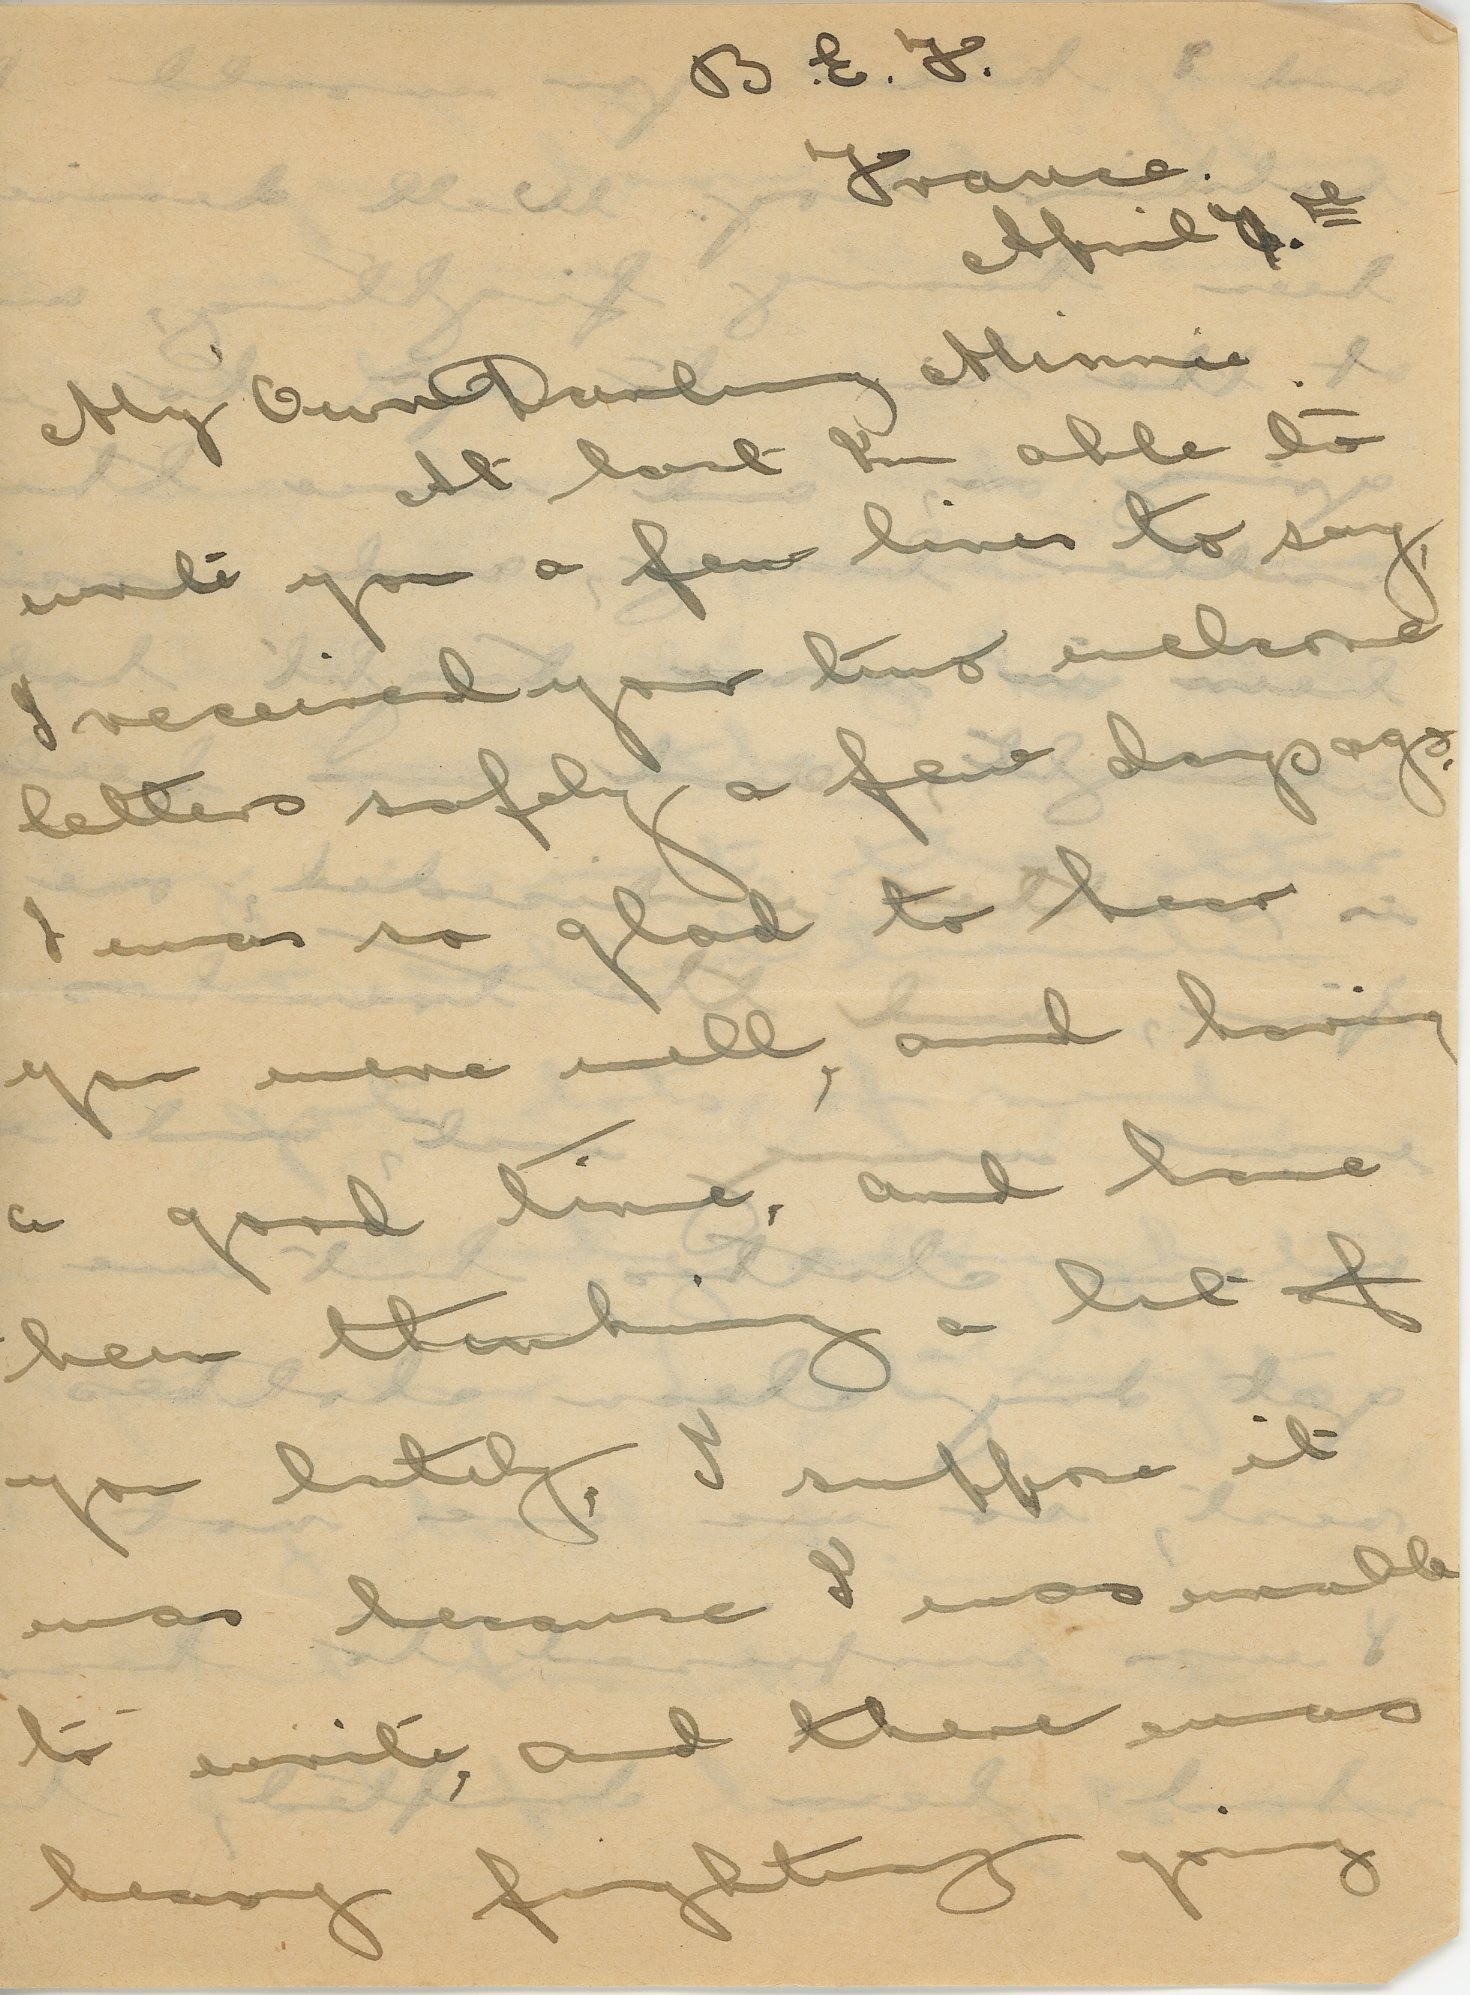 B.E.F.
France.
April
My Own Darling Minnie.
At last I'm able to
write you a few lines to say,
I received your two welcome
letters safely a few days ago.
I was so glad to hear
you were well, and having
a good time, and have
been thinking a lot of
you lately, I suppose it
was because I was unable
to write, and there was
heavy fighting going